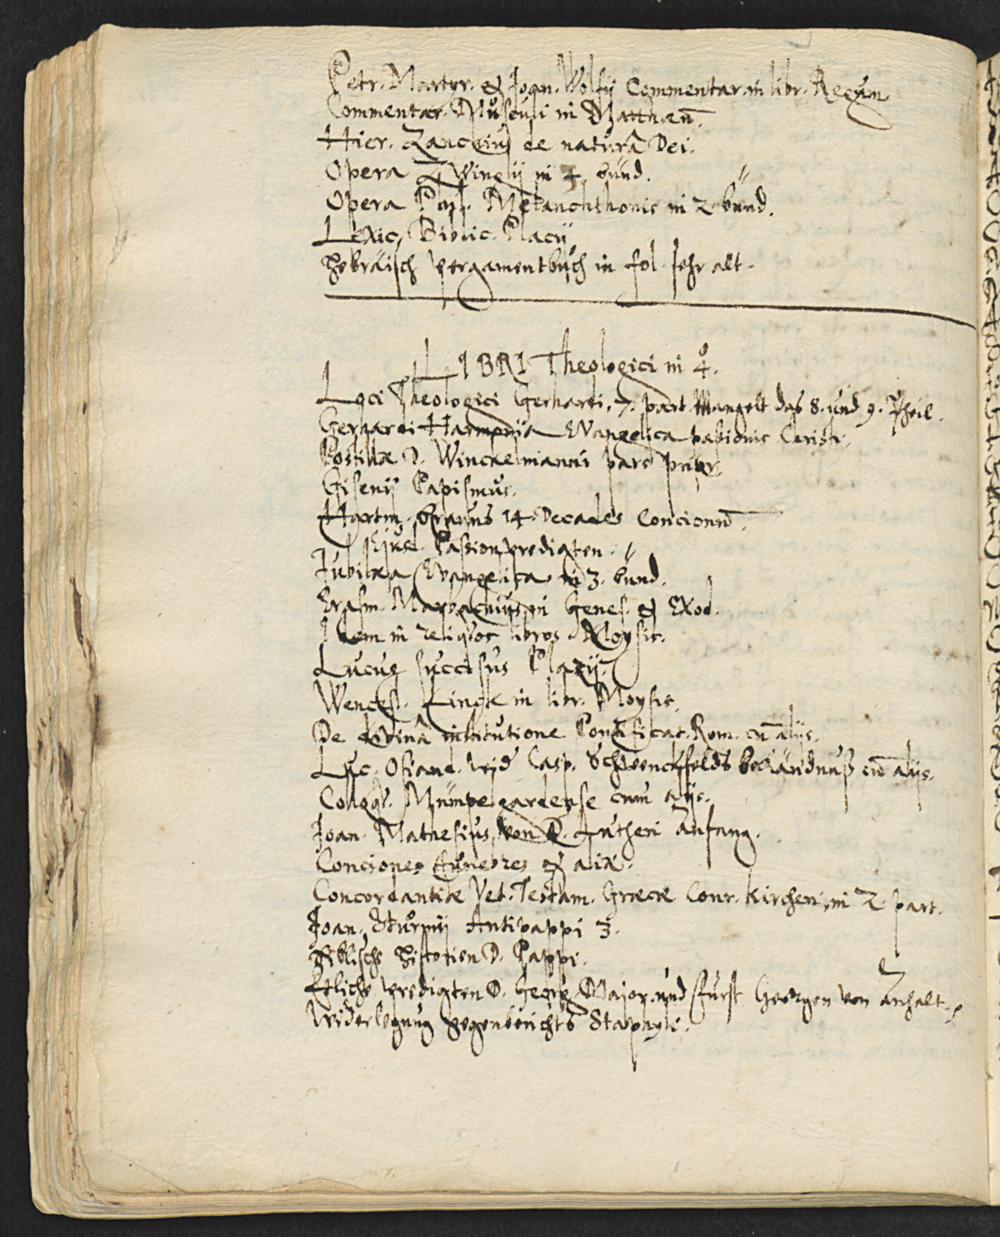 Petr. Martyr. & Joan. Wolfij Commentar. in libr. Regum
Commentar. Musculi in Matthæũ.
Hier. Zanchius de naturâ Dei.
Opera Zwinglij in 4. bünd.
Opera Phil. Melanchthonis in 2 bünd.
Lexic. Biblic. Flacij
Hebräisch Pergamentbuch in fol. sehr alt.
LIBRI Theologici in 4º.
Loci Theologici Gerhardi, 7. part. Mangelt das 8. und 9. Theil.
Gerhardi Harmonia Evangelica passionis Christi.
Postilla D. Winckelmanni pars prior.
Gisenij Papismus.
Hartm. Brauns 14. Decades Concionũ.
Ejusd. Passionpredigten.
Jubilæa Evangelica in 3. bünd.
Erasm. Marbachius in Genes. & Exod.
Idem in reliquos libros Moysis.
Lucus succisus Placij.
Wencesl. Linck in libr. Moysis.
De divinâ institutione Pontificat. Rom. cũ alijs.
Luc. Osiand. wid Casp. Schwenckfelds bekändnuß cũ alijs.
Colloq. Mümpelgardense cum alijs.
Joan. Mathesius, von D. Lutheri anfang.
Conciones funebres & aliæ.
Concordantiæ Vet. Testam. Græcæ Conr. Kircheri, in 2 part.
Joan. Sturmij Antipappi 3.
Biblische Historien D. Pappi.
Etliche predigten D. Georg Major. und Fürst Georgen von Anhalt.
Widerlegung gegenberichts Staphyli.